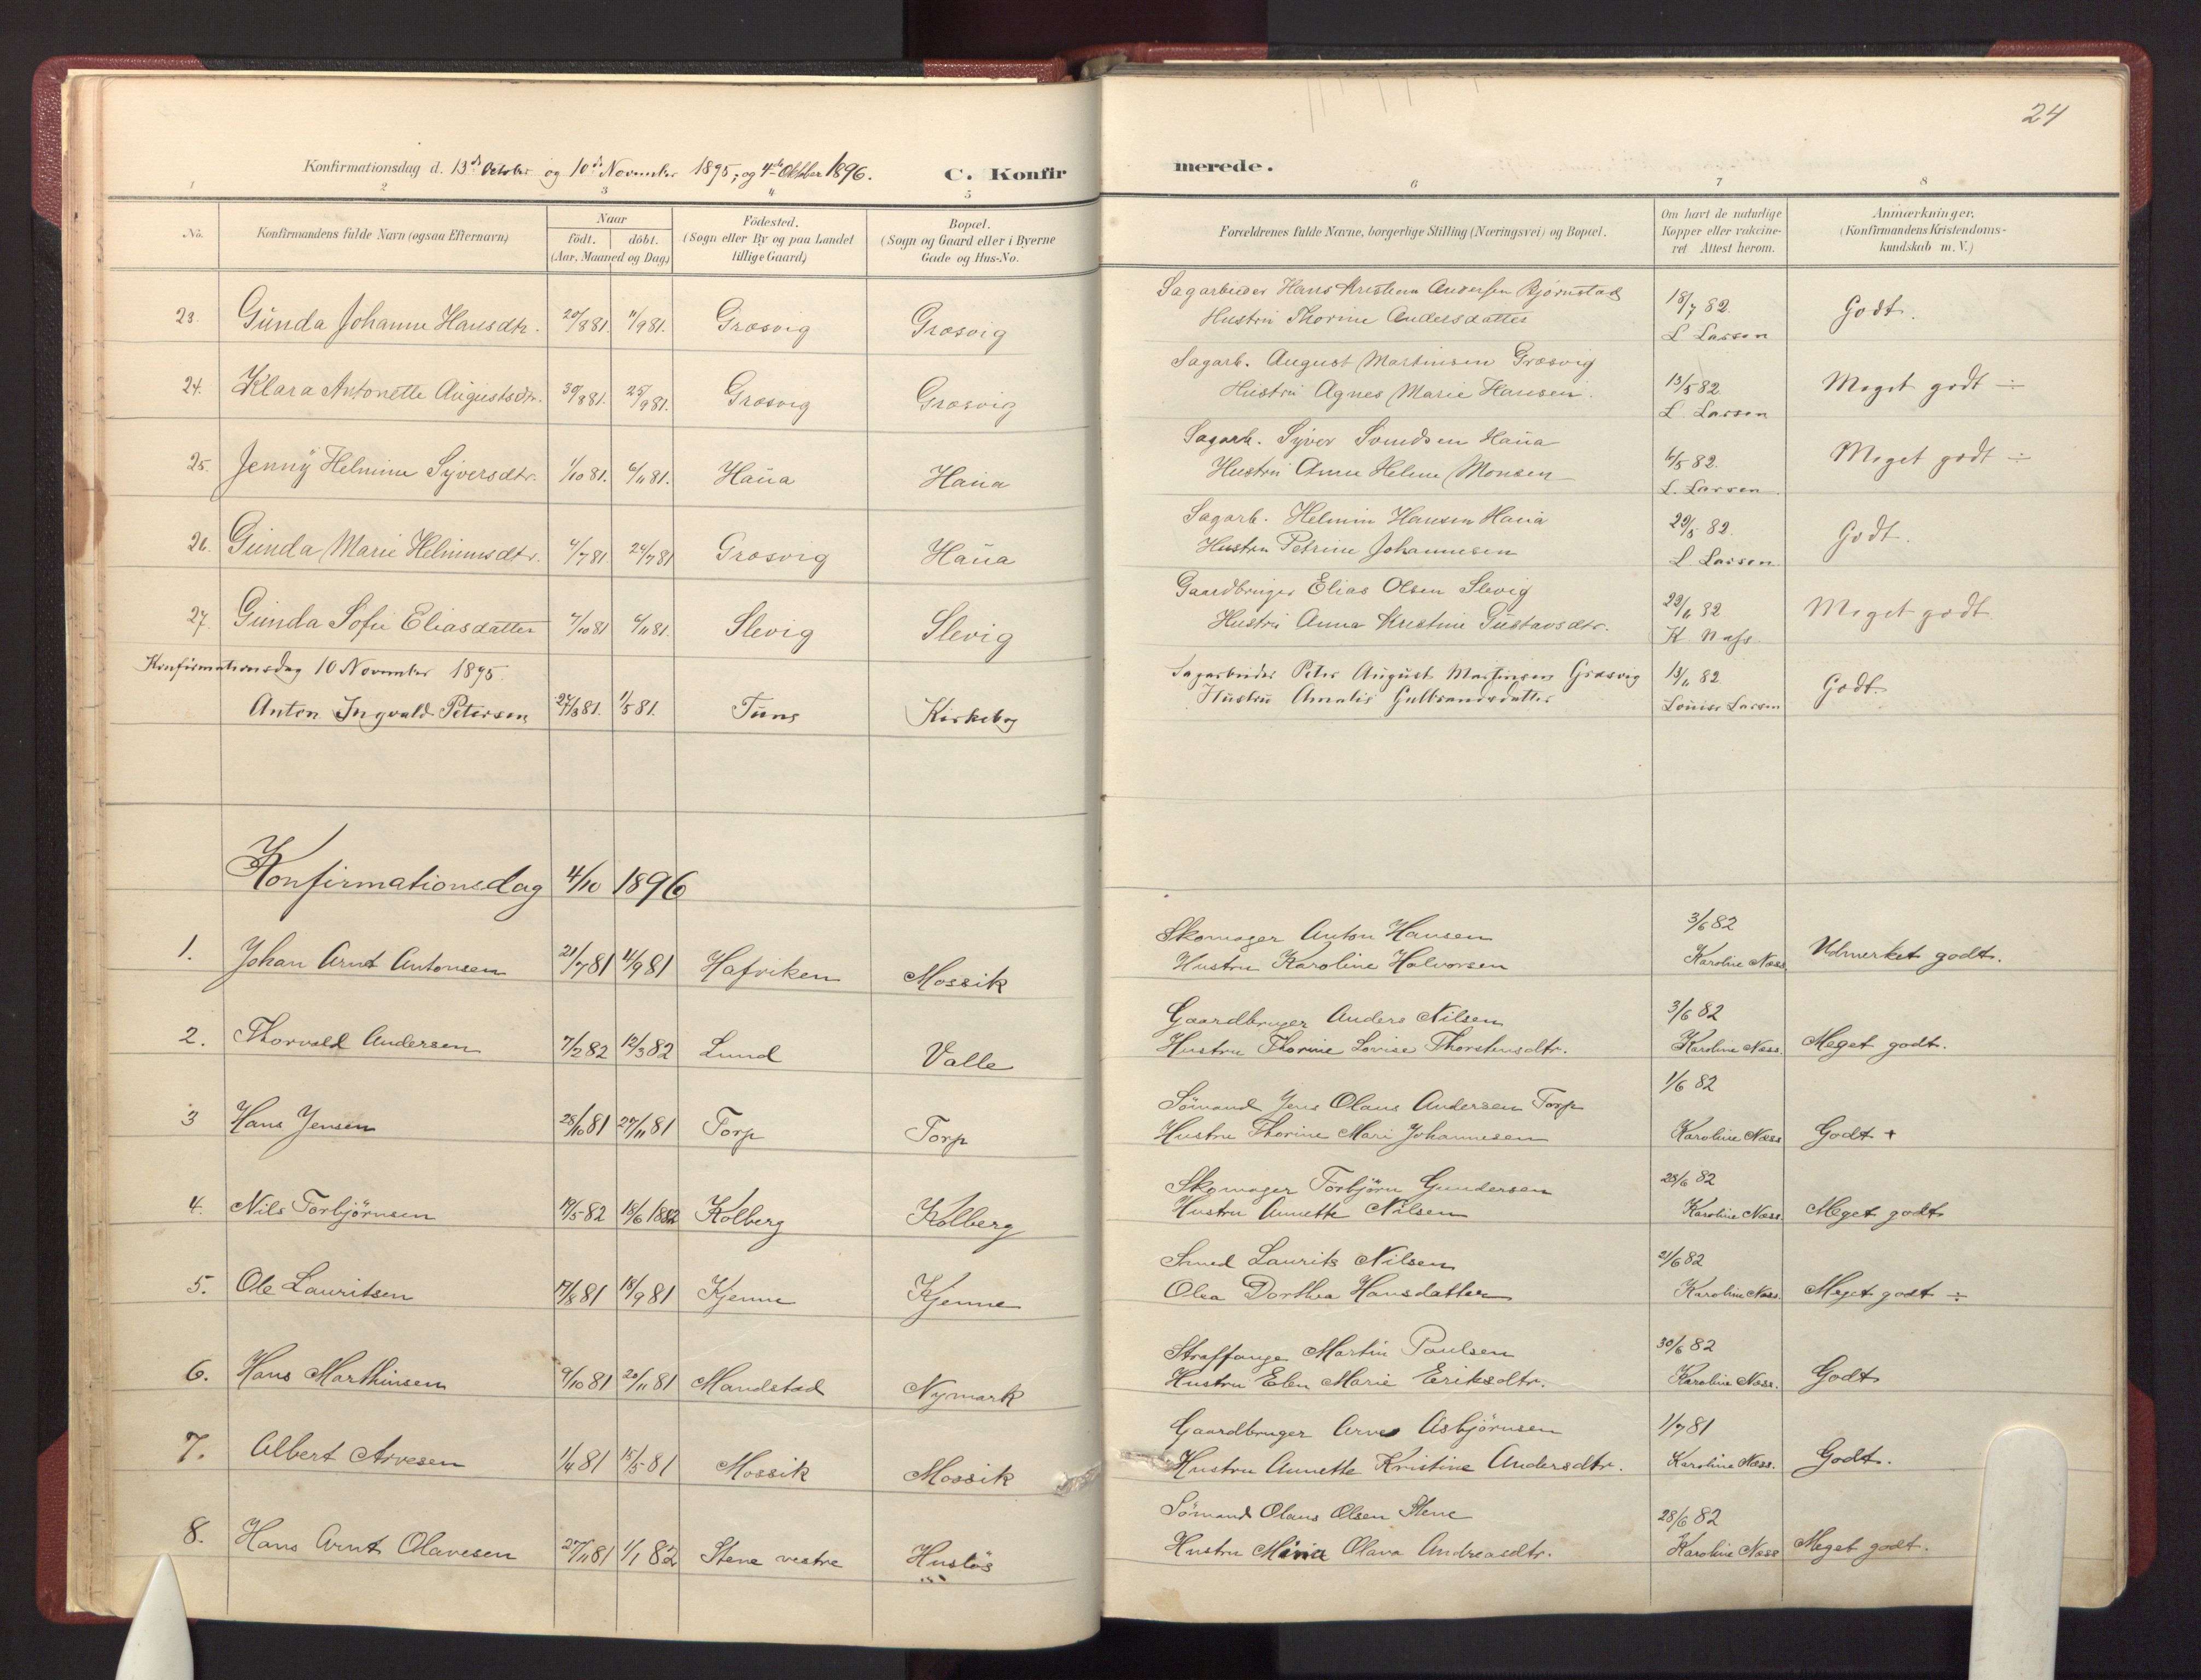 24
Konfirmationsdag d. 13de October og 10de November 1895, og 4de Oktober 1896.
C. Konfirmerede.
1 2 3 4 5 6 7 8
No.
Konfirmandens fulde Navn (ogsaa Efternavn)
Naar
födt. döbt.
(Aar, Maaned og Dag)
Födested.
(Sogn eller By og paa Landet
tillige Gaard)
Bopæl.
(Sogn og Gaard eller i Byerne
Gade og Hus-No.
Forældrenes fulde Navne, borgerlige Stilling (Næringsvei) og Bopæl.
Om havt de naturlige
Kopper eller vakcine-
ret Attest herom.
Anmærkninger.
(Konfirmandens Kristendoms-
kundskab m. V.)
Sagarbeider Hans Kristian Andersen Bjørnstad
23. Gunda Johanne Hansdtr. 20/8 81. 11/9 81. Græsvig Græsvig Hustru Thorine Andersdatter 18/7 82. L Larsen Godt.
Sagarb. August Martinsen Græsvig
24. Klara Antonette Augustsdtr. 30/8 81. 25/9 81. Græsvig Græsvig Hustru Agnes Marie Hansen. 13/5 82. L Larsen Meget godt ÷
Sagarb. Syver Svendsen Haua
25. Jenny Helmine Syversdtr. 1/10 81. 6/11 81. Haua Haua Hustru Anne Helene Monsen 6/5 82. L. Larsen Meget godt ÷
Sagarb. Helmin Hansen Haua
26. Gunda Marie Helminsdtr. 4/7 81. 24/7 81 Græsvig Haua Hustru Petrine Johannesen 29/5 82. L Larsen. Godt.
Gaardbruger Elias Olsen Slevig
27. Gunda Sofie Eliasdatter 7/10 81 6/11 81. Slevig Slevig Hustru Anna Kristine Gustavsdtr. 22/6 82 K Næss. Meget godt
Konfirmationsdag 10 November 1895.
Sagarbeider Peter August Martinsen Græsvig
Anton Ingvald Petersen 27/3 81. 1/5 81. Tune Kirkeby Hustru Amalie Gulbrandsdatter 13/6 82. Louise Larsen Godt.
Konfirmationsdag 4/10 1896
Skomager Anton Hansen 3/6 82
1. Johan Arnt Antonsen 21/7 81 11/9 81 Hafviken Mossik Hustru Karoline Halvorsen Karoline Næss. Udmerket godt.
Gaardbruger Anders Nilsen 3/6 82
2. Thorvald Andersen 7/2 82 12/3 82 Lund Valle Hustru Thorine Lovise Thorstensdtr. Karoline Næss. Meget godt.
Sömand Jens Olaus Andersen Torp 1/6 82
3 Hans Jensen 28/10 81 27/11 81 Torp Torp Hustru Thorine Mari Johannesen Karoline Næss Godt +
Skomager Torbjörn Gundersen 28/6 82
4. Nils Torbjörnsen 17/5 82 18/6 1882 Kolberg Kolberg Hustru Annette Nilsen Karoline Næss. Meget godt
Smed Laurits Nilsen 21/6 82
5. Ole Lauritsen 17/8 81 18/9 81 Kjenne Kjenne Olea Dorthea Hansdatter Karoline Næss. Meget godt ÷
Straffange Martin Paulsen 30/6 82
6. Hans Marthinsen 9/10 81 20/11 81 Mandstad Nymark Hustru Elen Marie Eriksdtr. Karoline Næss. Godt
Gaardbruger Arve Asbjörnsen 1/7 81
7. Albert Arvesen 1/4 81 15/5 81 Mossik Mossik Hustru Annette Kristine Andersdtr. Karoline Næss. Godt.
Sömand Olaus Olsen Stene 28/6 82
8. Hans Arnt Olavesen 27/11 81 1/1 82 Stene vestre Huslös Hustru Mina Olava Andreasdtr. Karoline Næss Meget godt.